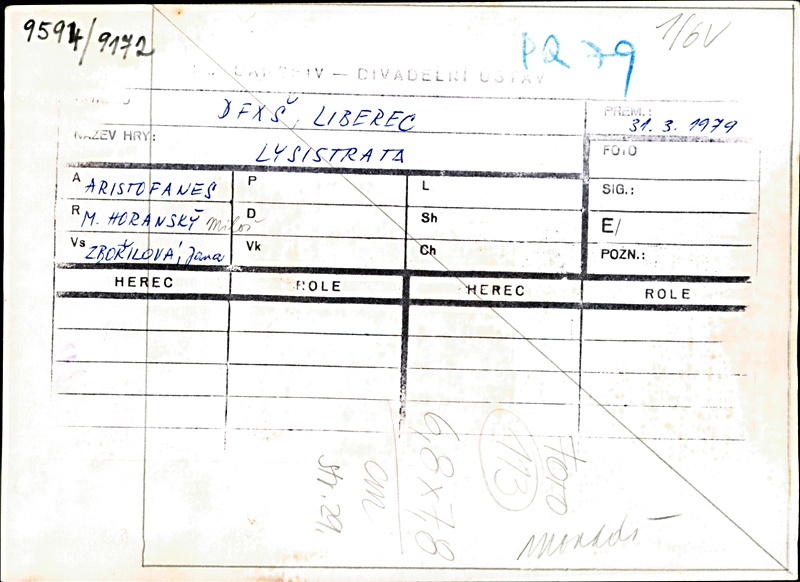 9591/9172
PQ 79
1/6V
DIVADELNÍ ÚSTAV
DFXŠ, LIBEREC
PREM.:
31. 3. 1979
NÁZEV HRY:
LYSISTRATA
FOTO
A ARISTOFANES P L SIG.:
R M. HORANSKÝ Miloš D Sh E/
Vs ZBOŘILOVÁ, Jana Vk Ch POZN.:
HEREC ROLE HEREC ROLE
str. 29,
cm
6,8 x 7,8
113
FOTO